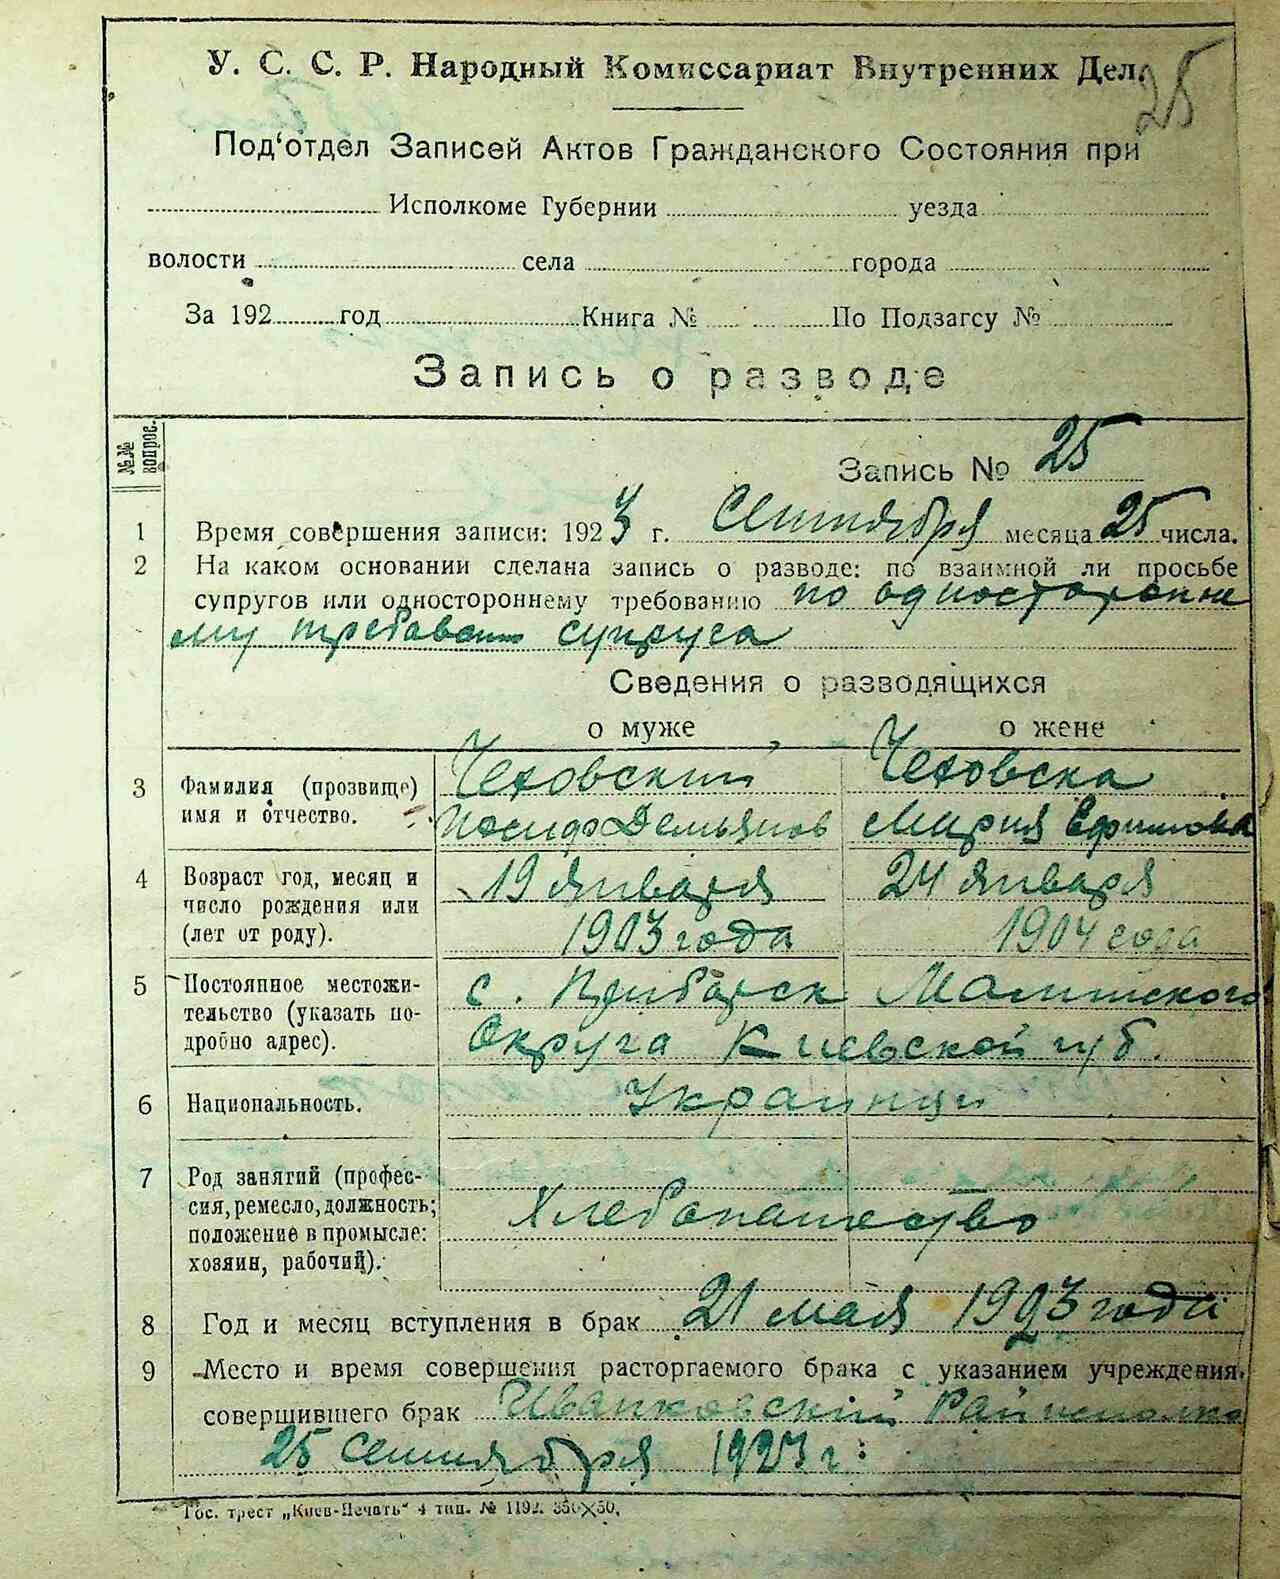 25
У. С. С. Р. Народный Комиссариат Внутренних Дел.
Под‘отдел Записей Актов Гражданского Состояния при
Исполкоме Губернии уезда
волости села города
За 192 год Книга № По Подзагсу №
Запись о разводе
№№ вопрос.
Запись № 25
1 Время совершения записи: 1923 г. Сентября месяца 25 числа.
2 На каком основании сделана запись о разводе: по взаимной ли просьбе
супругов или одностороннему требованию по одностороннe
му требован супруга
Сведения о разводящихся
о муже о жене
3 Фамилия (прозвище) Чеховский Чеховска
имя и отчество. Иосиф Демьянов Мария Ефимовна
4 Возраст год, месяц и 19 января 24 января
число рождения или
(лет от роду). 1903 года 1904 года
5 Постоянное местожи- с. Прибарск
тельство (указать по- округа Киевской губ.
дробно адрес).
6 Национальность. Украинци
7 Род занятий (профес-
сия, ремесло, должность; Хлебопашество
положение в промысле:
хозяин, рабочий).
8 Год и месяц вступления в брак 21 мая 1923 года
9 Место и время совершения расторгаемого брака с указанием учреждения,
совершившего брак Иванковский Райисполко
25 сентября 1923 г.
Гос. трест „Киев-Печать“ 4 тип. № 1192. 350×50.